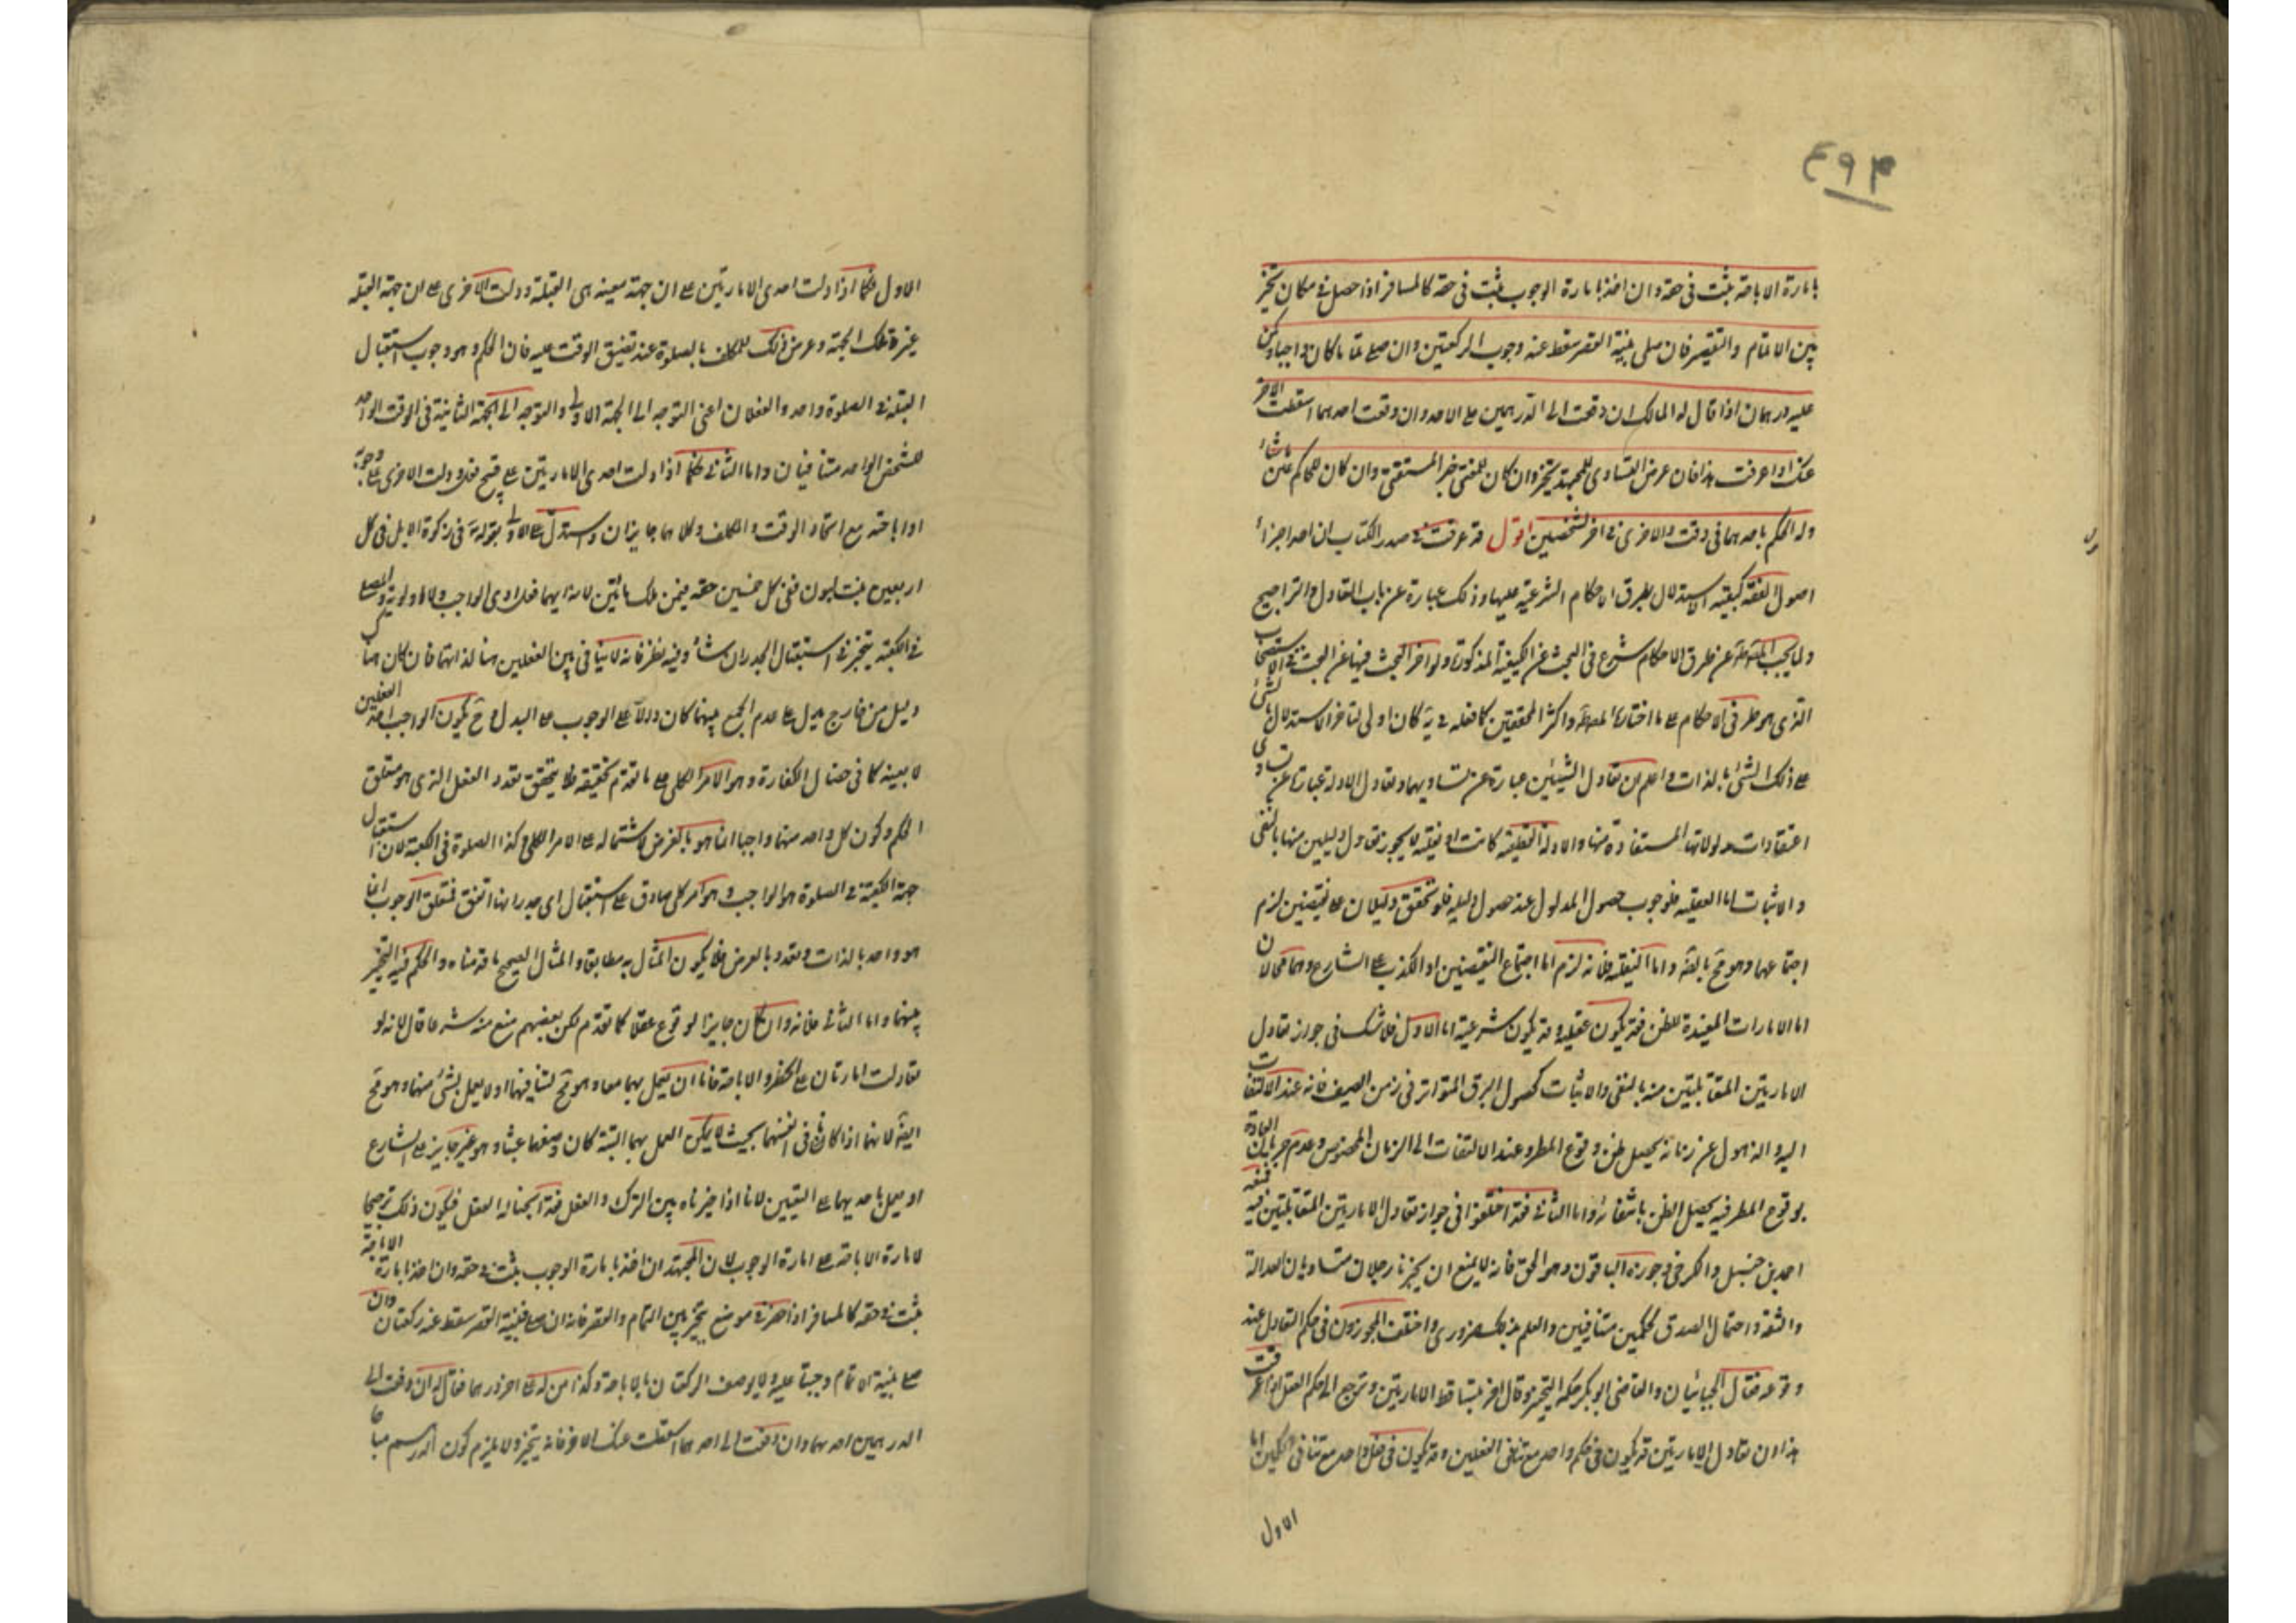 ٤٩٣
بامارة الاباحة يثبت فى حقه وان اخذ بامارة الوجوب يثبت فى حقه كالمسافر اذا حصل فى مكان يتخير
بين الاتمام والتقصير فان صلى بنية القصر سقط عنه وجوب الركعتين وان صلى تماما كان واجبا وكمن
عليه درهمان اذا قال له المالك ان دفعت الى الدرهمين على الاحد وان دفعت احدهما اسقطت الآخر
عنك اذا عرفت هذا فان عرض التساوى للمجتهد يتخير وان كان للمفتى خير المستفتى وان كان للحاكم عين ما شاء
وله الحكم باحدهما فى وقت والاخرى فى اخر لشخصين اقول قد عرفت فى صدر الكتاب ان احد اجزاء
اصول الفقه كيفية الاستدلال بطرق الاحكام الشرعية عليها وذلك عبارة عن باب التعادل والتراجيح
ولما بحث المصنف عن طرق الاحكام شرع فى البحث عن الكيفية المذكورة ولو اخر البحث فيها عن البحث فى الاستصحاب
الذى هو طريق الاحكام على ما اختاره المصنف واكثر المحققين كما فعله فى يه كان اولى لتاخر الاستدلال بالشئ
على ذلك الشئ بالذات واعلم ان تعادل الشيئين عبارة عن تساويهما وتعادل الادلة عبارة عن تساوى
اعتقادات مدلولاتها المستفادة منها والادلة العقلية كانت او نقلية لا يجوز تعادل دليلين منها بالنفى
والاثبات اما العقلية فلوجوب حصول المدلول عند حصول دليله فلو تحقق دليلان على نقيضين لزم
اجتماعهما وهو مح بالضرورة واما النقلية فلانه لزم اما اجتماع النقيضين او الكذب على الشارع وهما محالان
اما الامارات المفيدة للظن فقد يكون عقلية وقد يكون شرعية اما الاول فلا شك فى جواز تعادل
الامارتين المتقابلتين منه بالنفى والاثبات كحصول البرق المتواتر فى زمن الصيف فانه عند الالتفات
اليه والذهول عن زمانه يحصل ظن وقوع المطر وعند الالتفات الى الزمان المخصوص وعدم جريان العادة
بوقوع المطر فيه يحصل الظن بانتفائه واما الثانى فقد اختلفوا فى جواز تعادل الامارتين المتقابلتين فيه فمنعه
احمد بن حنبل والكرخى وجوزه الباقون وهو الحق فانه لا يمنع ان يخبرنا رجلان متساويان العدالة
والثقة واحتمال الصدق بحكمين متنافيين والعلم بذلك ضرورى واختلف المجوزون فى حكم التعادل عند
وقوعه فقال الجبائيان والقاضى ابو بكر حكمه التخيير وقال اخر بتساقط الامارتين ويرجع الى حكم العقل اذا عرفت
هذا ان تعادل الامارتين قد يكون فى حكم واحد مع تنافى الفعلين وقد يكون فى فعل واحد مع تنافى الحكمين اما
الاول
الاول فكما اذا دلت احدى الامارتين على ان جهة معينة هى القبلة ودلت الاخرى على ان جهة القبلة
غير تلك الجهة وعرض ذلك للمكلف بالصلوة عند تضيق الوقت عليه فان الحكم وهو وجوب استقبال
القبلة فى الصلوة واحد والفعلان اعنى التوجه الى الجهة الاولى والتوجه الى الجهة الثانية فى الوقت الواحد
للشخص الواحد متنافيان واما الثانى فكما اذا دلت احدى الامارتين على قبح فعل ودلت الاخرى على وجوبه
او اباحته مع اتحاد الوقت والمكلف وكلاهما جايزان واستدل على الاولى بقوله فى زكوة الابل فى كل
اربعين بنت لبون ففى كل خمسين حقه فيمن ملك مائتين لانه ايهما فعل ادى الواجب ولا اولوية والمصلى
فى الكعبة يتخير فى استقبال اى الجدران شاء وفيه نظر فانه لا تنافى بين الفعلين هنا لذاتهما فان كان هنا
دليل من خارج يدل على عدم الجمع بينهما كان دالا على الوجوب على البدل وح يكون الواجب احد الفعلين
لا بعينه كما فى خصال الكفارة وهو الامر الكلى على ما تقدم تحقيقه فلا يتحقق تعدد الفعل الذى هو متعلق
الحكم وكون كل واحد منهما واجبا انما هو بالعرض لاشتماله على الامر الكلى وكذا الصلوة فى الكعبة لان استقبال
جهة الكعبة فى الصلوة هو الواجب وهو امر كلى صادق على استقبال اى جدرانها اتفق فمتعلق الوجوب انما
هو واحد بالذات وتعدده بالعرض فلا يكون المثال به مطابقا والمثال الصحيح ما قدمناه والحكم فيه التخيير
بينهما واما الثانى فانه وان كان جايز الوقوع عقلا كما تقدم لكن بعضهم منع منه شرعا قال لانه لو
تعادلت امارتان على الحظر والاباحة فاما ان يعمل بهما معا وهو مح لتنافيهما او لا يعمل بشئ منهما وهو مح
ايضا لانهما اذا كانا فى نفسهما بحيث لا يمكن العمل بهما البتة كان وضعهما عبثا وهو غير جايز على الشارع
او يعمل باحديهما على التعيين لانا اذا خيرناه بين الترك والفعل فقد ابحنا له الفعل فيكون ذلك ترجيحا
لامارة الاباحة على امارة الوجوب لان المجتهد ان اخذ بامارة الوجوب يثبت فى حقه وان اخذ بامارة الاباحة
يثبت فى حقه كالمسافر اذا حضر فى موضع يتخير بين التمام والقصر فانه ان صلى بنية القصر سقط عنه ركعتان وان
صلى بنية الاتمام وجبتا عليه ولا يوصف الركعتان بالاباحة وكذا من له على اخر درهما فقال له ان دفعت الى
الدرهمين احدهما وان دفعت الى احدهما اسقطت عنك الاخر فانه يتخير ولا يلزم كون الدرهم مباحا